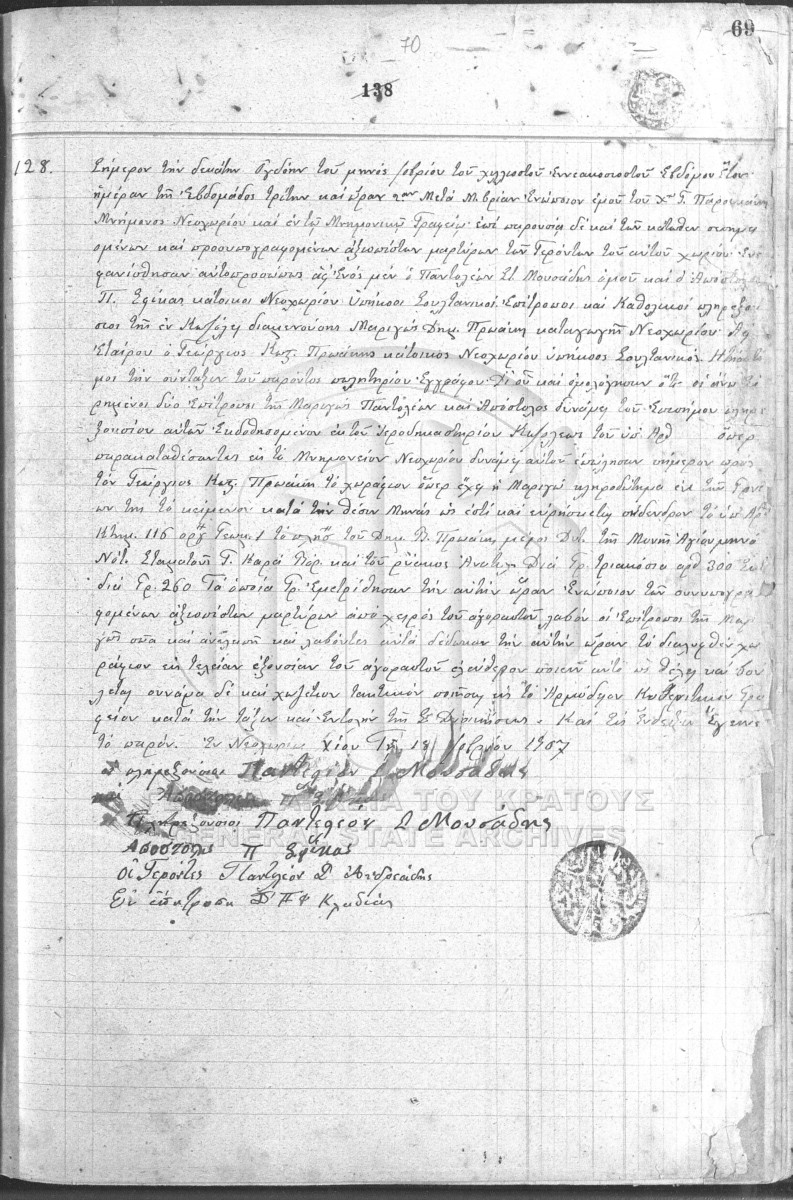 69
70
138
128. Σήμερον τὴν δεκάτην ὀγδόην τοῦ μηνὸς /βρίου τοῦ χιλιοστοῦ ἐννεακοσιοστοῦ ἑβδόμου ἔτους
ἡμέραν τῆς ἑβδομάδος τρίτην καὶ ὥραν μετὰ Μ.βρίαν ἐνώπιον ἐμοῦ τοῦ Γ.
Μνήμονος Νεοχωρίου καὶ ἐν τῷ Μνημονικῷ Γραφείῳ ἐπὶ παρουσίᾳ δὲ καὶ τῶν κάτωθεν σημει
ομένων καὶ προσυπογραφομένων ἀξιοπίστων μαρτύρων τῶν Γερόντων τοῦ αὐτοῦ χωρίου Ἐνε
φανίσθησαν αὐτοπροσώπως ἀφ' ἑνὸς μὲν ὁ Παντολέων Στ. Μουσάδης ὁμοῦ καὶ ὁ Ἀπόστολος
Π. Σφίκας κάτοικοι Νεοχωρίου ὑπήκοοι Σουλτανικοὶ Ἐπίτροποι καὶ Καθολικοὶ πληρεξού
σιοι τῆς ἐν διαμενούσης Μαριγῶς Δημ. Πρωάκη καταγωγῆς Νεοχωρίου Ἀφ
Ἑταίρου ὁ Γεώργιος Κωζ. Πρωάκης κάτοικος Νεοχωρίου ὑπήκοος Σουλτανικός.
μοι τὴν σύνταξιν τοῦ παρόντος πωλητηρίου Ἐγγράφου Δι' οὗ καὶ ὁμολόγησαν ὅτι οἱ ἄνω εἰ
ρημένοι δύο Ἐπίτροποι τῆς Μαριγῶς Παντολέων καὶ Ἀπόστολος δυνάμει τοῦ ἐπισήμου πληρε
ξουσίου αὐτῶν ἐκδοθησομένου ἐκ τοῦ Ἱεροδικαστηρίου τοῦ ὑπ' Ἀρθ ὅπερ
παρακαταθέσαντες εἰς τὸ Μνημονεῖον Νεοχωρίου δυνάμει αὐτοῦ ἐπώλησαν σήμερον πρὸς
τὸν Γεώργιος Κωζ. Πρωάκη τὸ χωράφιον ὅπερ ἔχει ἡ Μαριγὼ κληροδότημα ἐκ τῆς
των της τὸ κείμενον κατὰ τὴν θέσιν Μηνᾶς ὡς ἐστὶ καὶ εὑρίσκεται σύνδενδρον τὸ ὑπ' Ἀρ
Κτημ. 116 Γεωμ. 1 τὸ πλησ. τοῦ Δημ. Π. Πρωάκη, μεσημ. Δυτ. τῆς Μονῆς Ἁγίου μηνᾶ
Νότ. Σταματοῦ Γ. Καρᾶ Βορ. καὶ τοῦ ρύακος Ἀνατολ. Διὰ Γρ. τριακόσια αρθ 300
διὰ Γρ. 260 Τὰ ὁποῖα Γρ. ἐμετρίσθησαν τὴν αὐτὴν ὥραν ἐνώπιον τῶν συνυπογρα
φομένων ἀξιοπίστων μαρτύρων ἀπὸ χειρὸς τοῦ ἀγοραστοῦ λαβὸν οἱ Ἐπίτροποι τῆς Μαρι
γῶς σῶα καὶ ἀνελλιπῆ καὶ λαβόντες αὐτὰ δέδωκαν τὴν αὐτὴν ὥραν τὸ διαληφθὲν χω
ράφιον εἰς τελείαν ἐξουσίαν τοῦ ἀγοραστοῦ ἐλεύθερον ποιεῖν αὐτὸ ὡς θέλει καὶ βού
λεται συνάμα δὲ καὶ χωζέτιον τακτικὸν ποιῆσαι εἰς τὸ ἁρμόδιον Κυβερνητικὸν Γρα
φεῖον κατὰ τὴν τάξιν καὶ ἐντολὴν τῆς Σ. Διοικήσεως. Καὶ εἰς ἔνδειξιν ἐγένετο
τὸ παρόν. Ἐν Νεοχωρίῳ Χίου Τῇ 18 /βρίου 1907
οἱ πληρεξούσιοι Παντελεὼν Σ Μουσάδης
καὶ
Πληρεξούσιοι Παντελεόν Σ Μουσάδης
Αποστολης Π Σφίκας
Οἱ Γερόντες Παντελεὸν Σ Ἀνδρεάδης
Δ Π Φ Κλαδιάς
ΓΕΝΙΚΑ ΑΡΧΕΙΑ ΤΟΥ ΚΡΑΤΟΥΣ
GENERAL STATE ARCHIVES